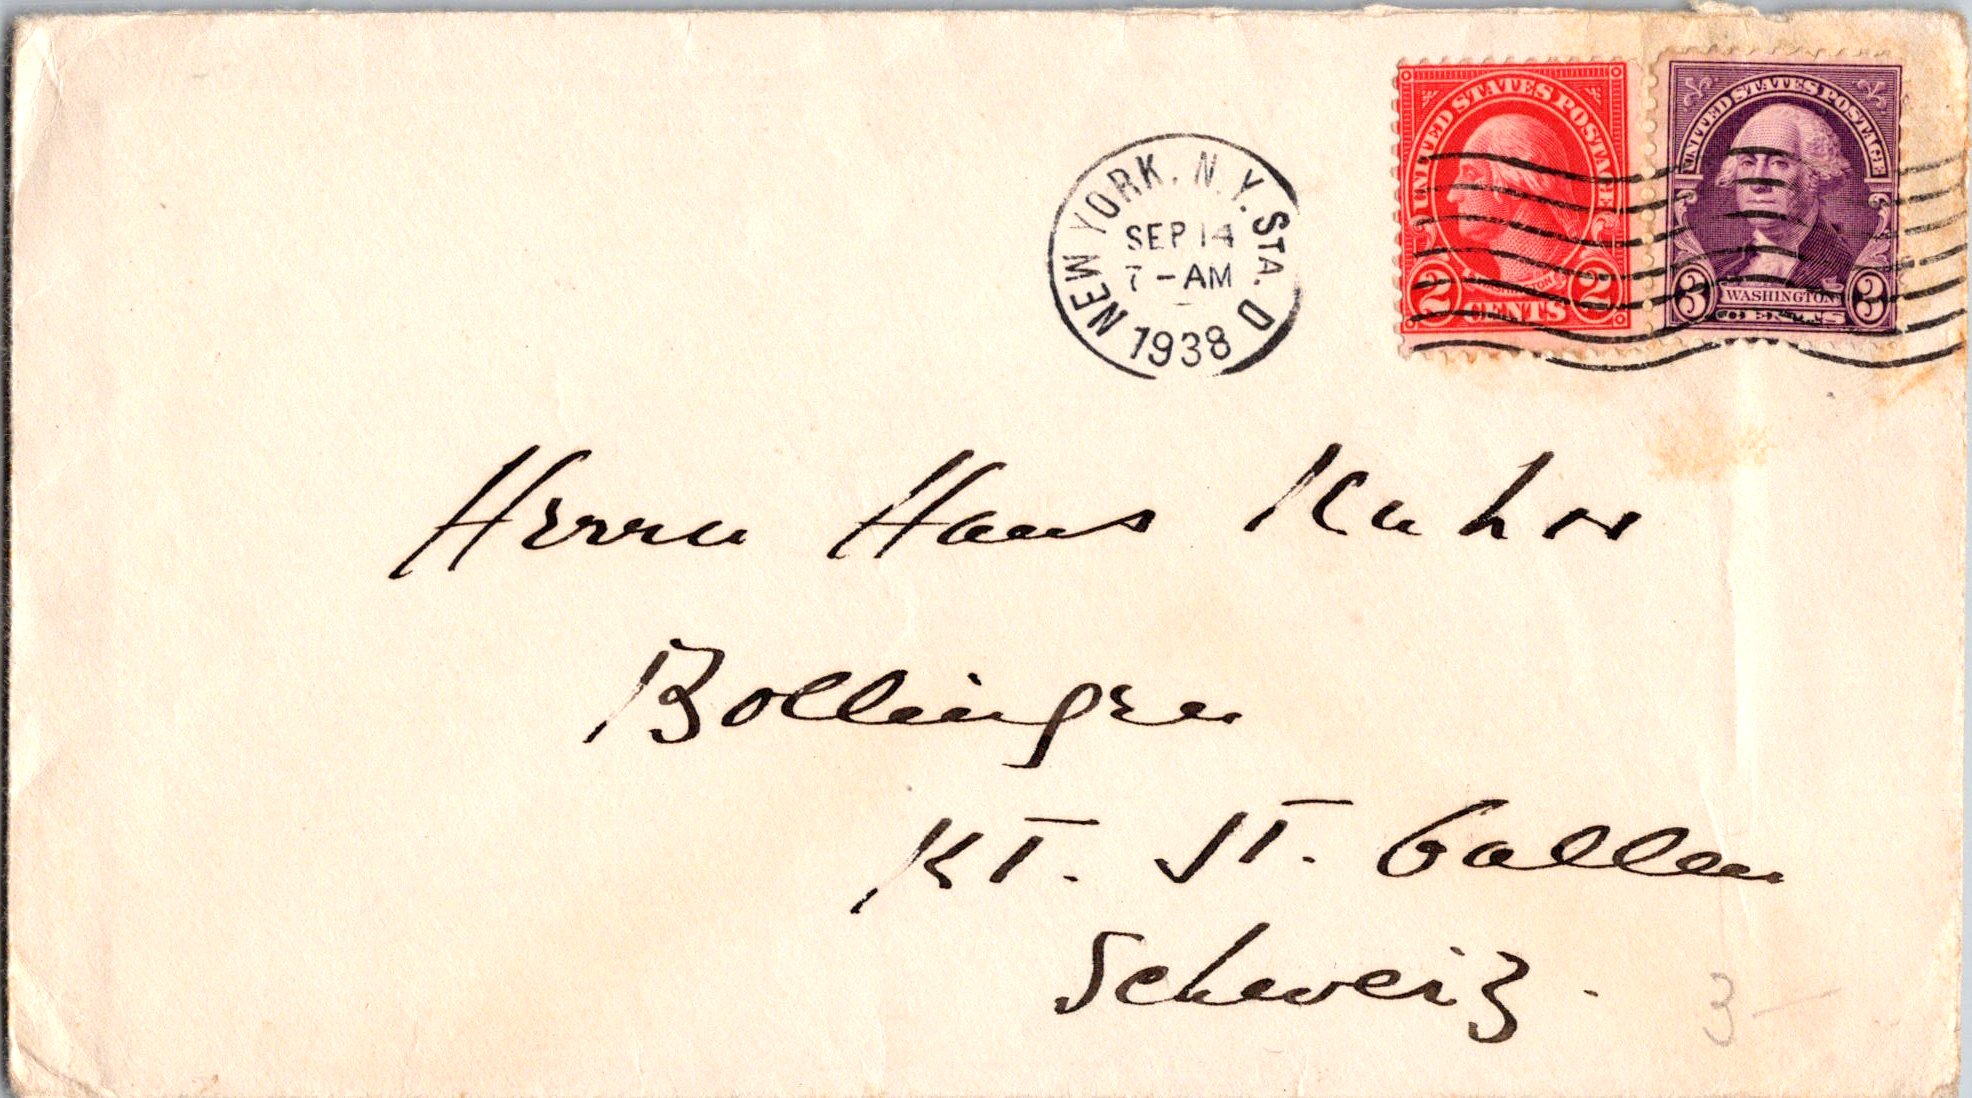 UNITED STATES POSTAGE
WASHINGTON
2 CENTS 2
UNITED STATES POSTAGE
3 WASHINGTON 3
CENTS
NEW YORK, N.Y. STA. D
SEP 14
7-AM
1938
Herrn Hans Kuhn
Bollingen
KT. ST. Gallen
Schweiz.
3 -